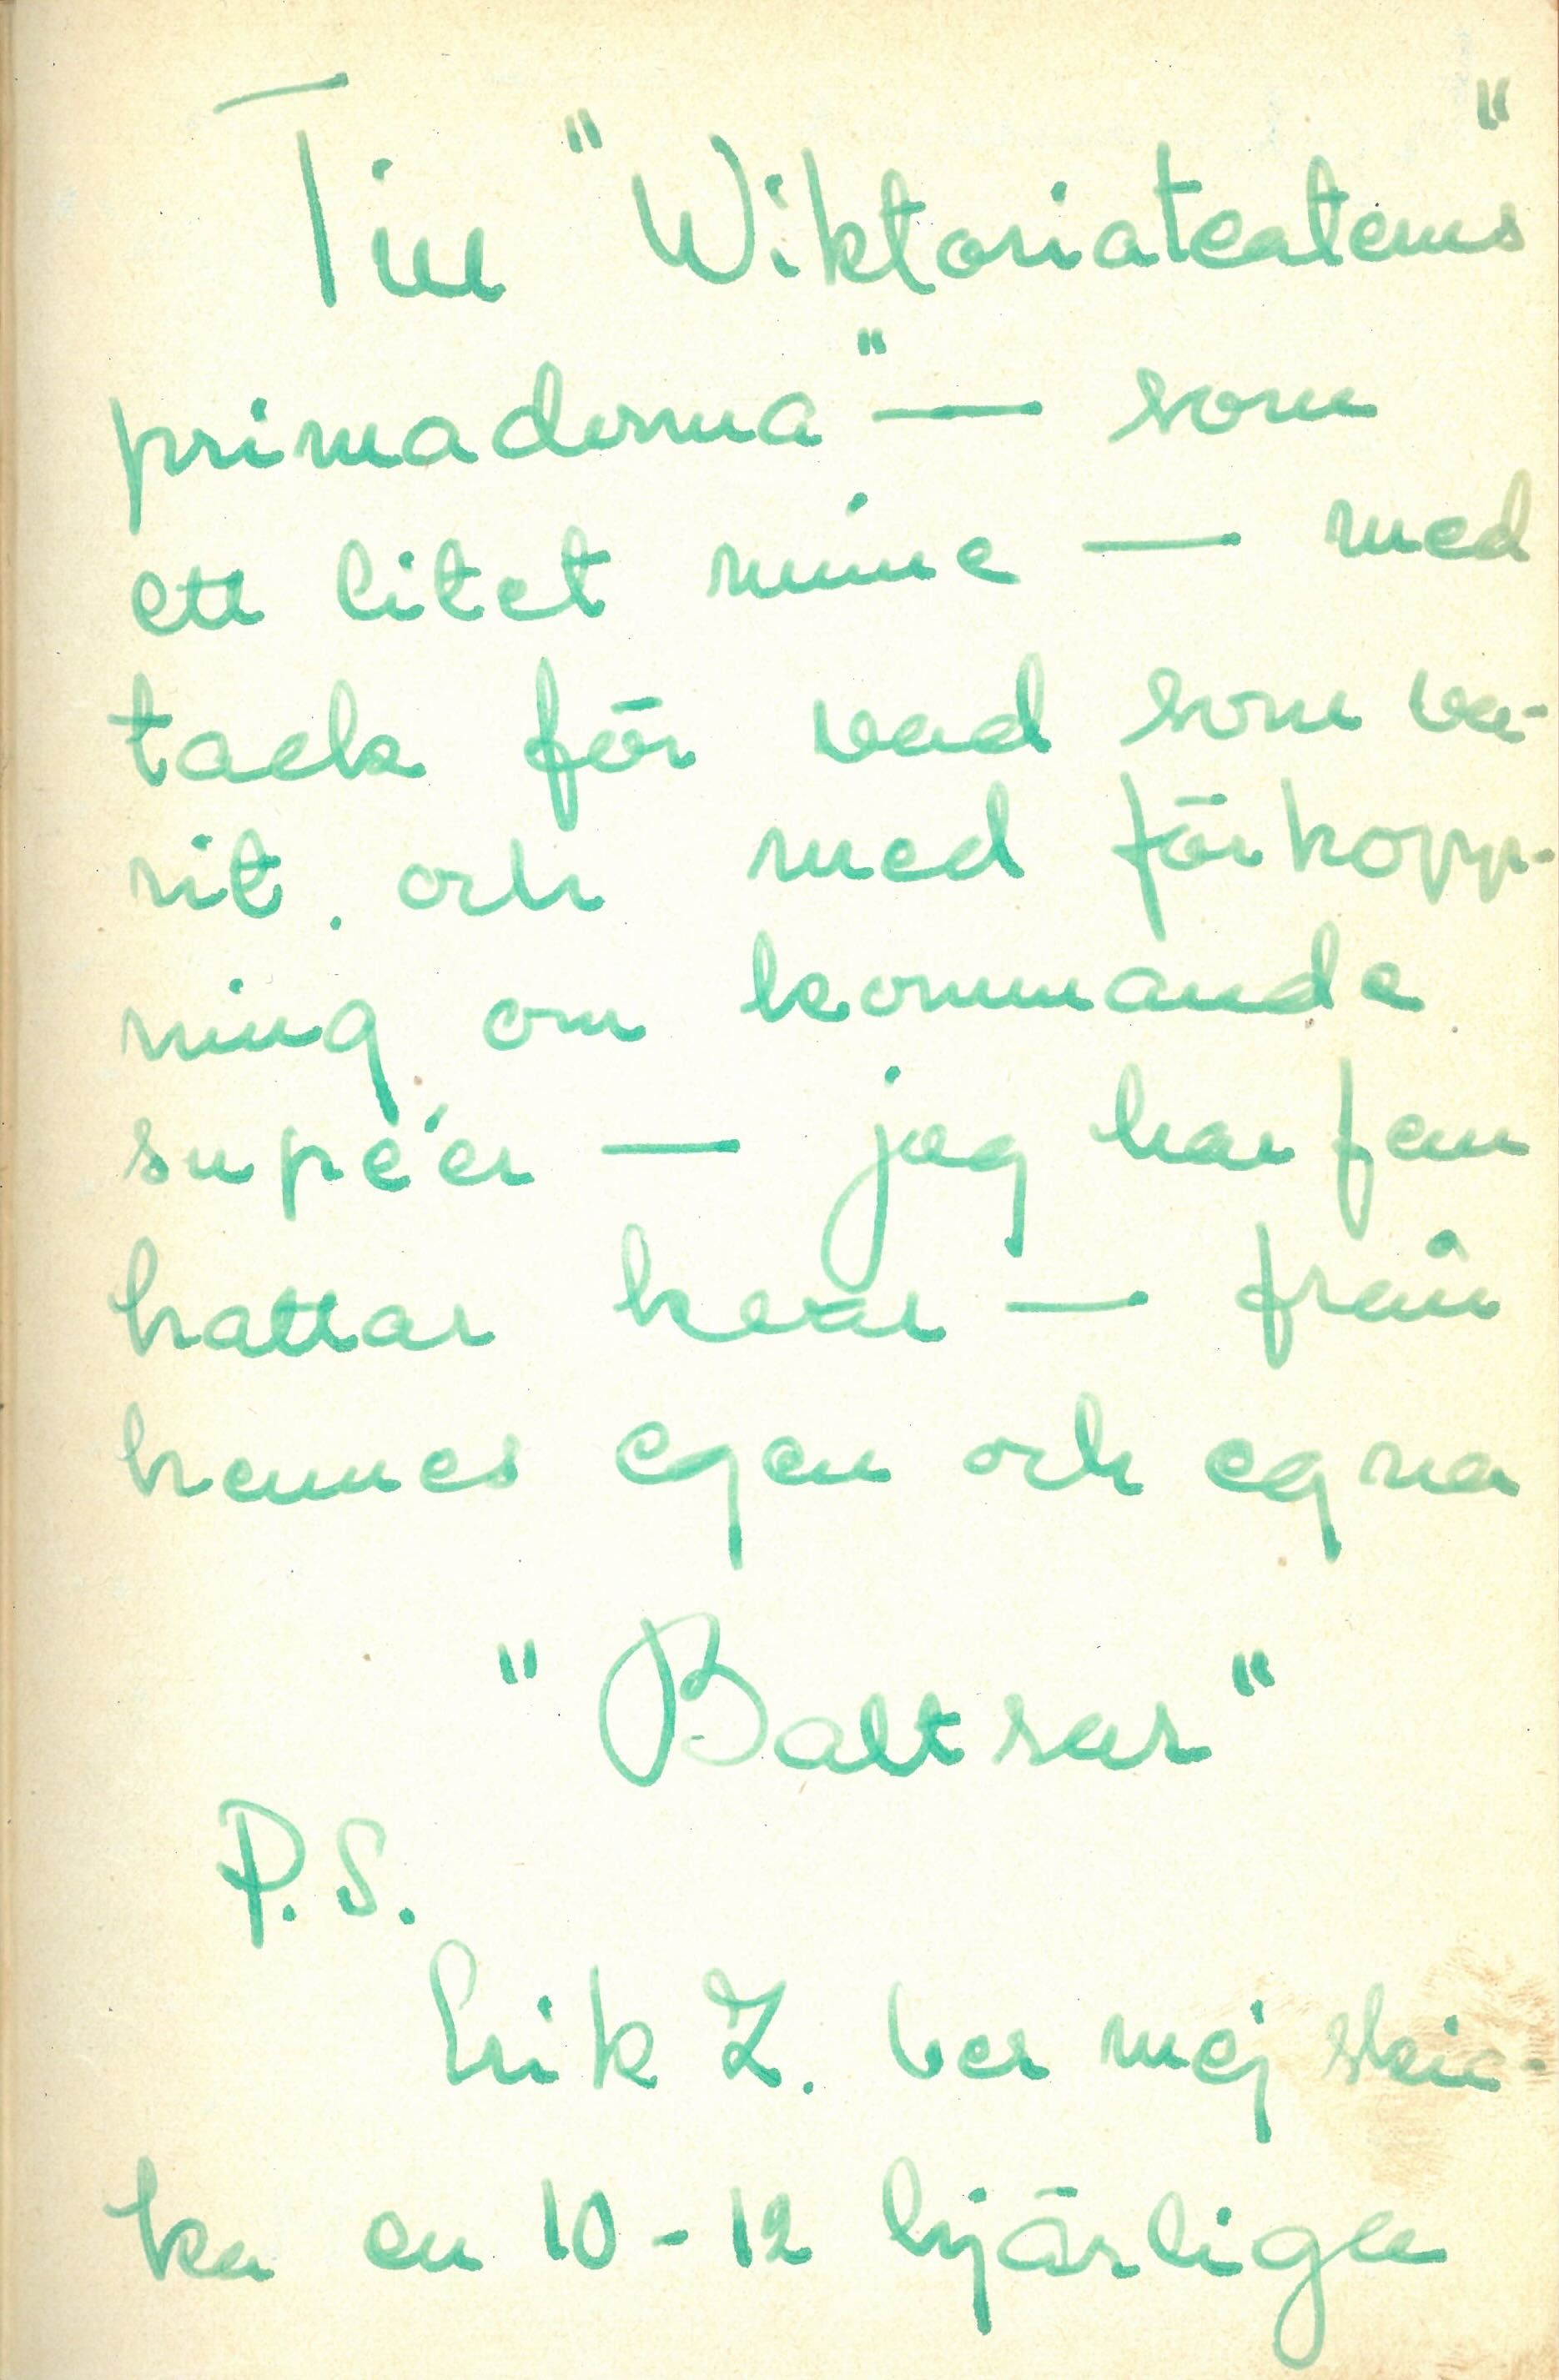 Till "Wiktoriateaterns"
primadonna" — som
ett litet minne — med
tack för vad som va-
rit. och med förhopp-
ning om kommande
supéer — jag har fem
hattar kvar — från
hennes egen och egna
"Baltsar"
P.S.
Erik Z. ber mej skic-
ka en 10-12 hjärtliga